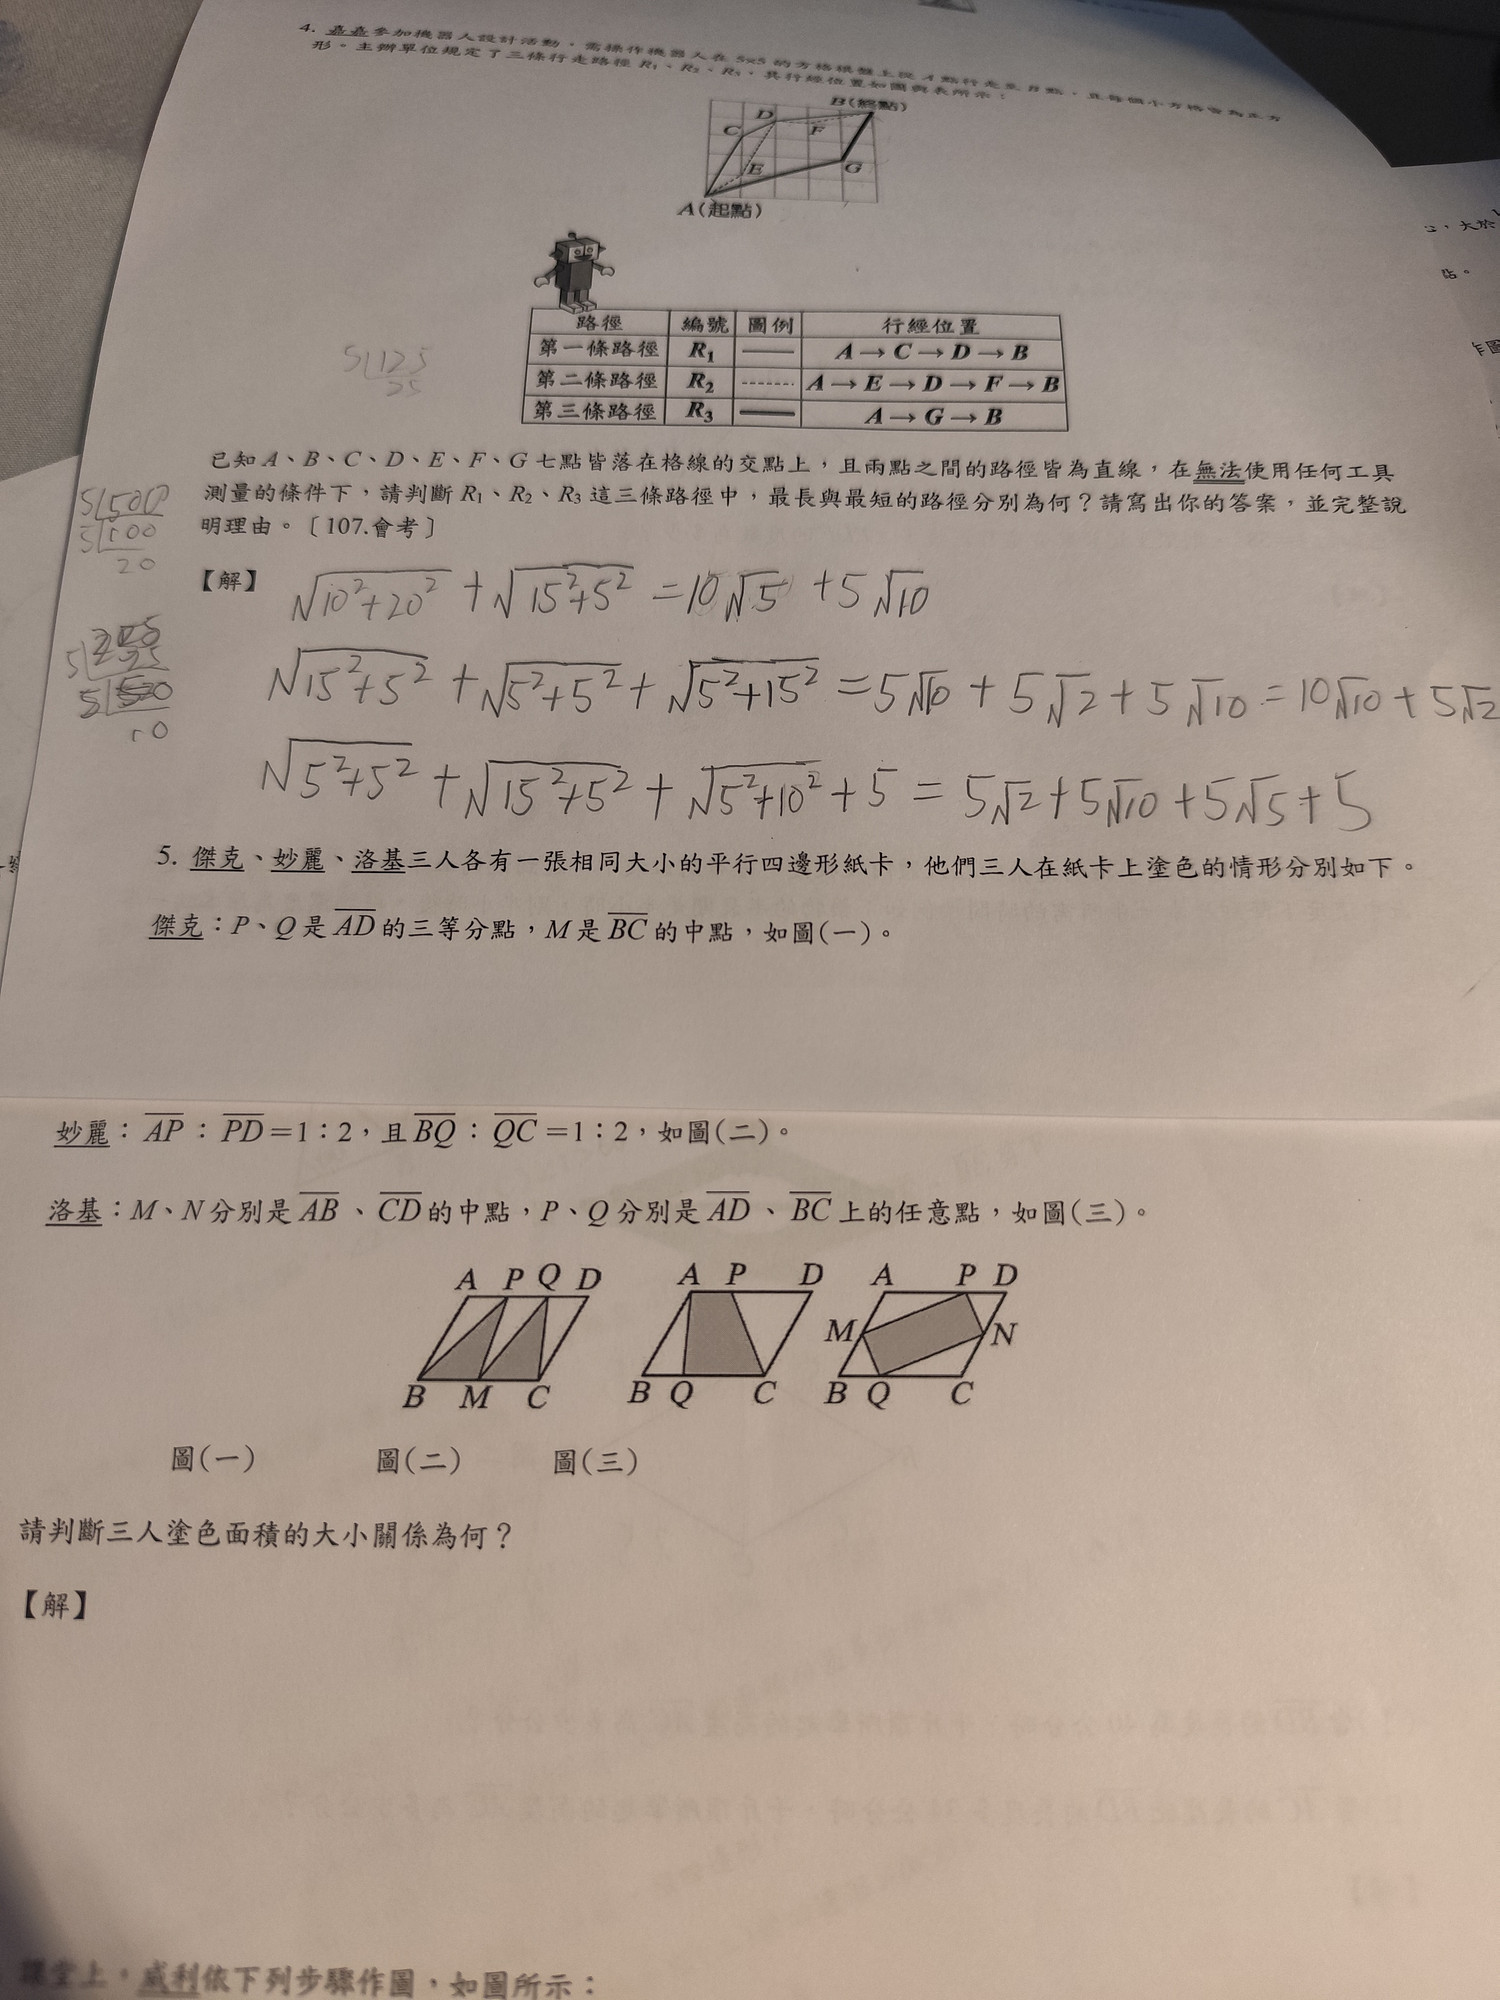 4. 嘉嘉參加機器人設計活動,需操控機器人在 5x5 的方格棋盤上從 A 點行走至 B 點,且每個小方格皆為正方
形。主辦單位規定了三條行走路徑 R₁、R₂、R₃,其行經位置如圖與表所示:
B(終點)
D
C
F
E
G
A(起點)
路徑 編號 圖例 行經位置
第一條路徑 R₁ A→C→D→B
第二條路徑 R₂ A→E→D→F→B
第三條路徑 R₃ A→G→B
5 125
25
已知 A、B、C、D、E、F、G 七點皆落在格線的交點上,且兩點之間的路徑皆為直線,在無法使用任何工具
測量的條件下,請判斷 R₁、R₂、R₃ 這三條路徑中,最長與最短的路徑分別為何?請寫出你的答案,並完整說
明理由。〔107.會考〕
5 500
5 100
20
【解】 √10²+20² + √15²+5² = 10√5 + 5√10
√15²+5² + √5²+5² + √5²+15² = 5√10 + 5√2 + 5√10 = 10√10 + 5√2
10
√5²+5² + √15²+5² + √5²+10² + 5 = 5√2 + 5√10 + 5√5 + 5
5. 傑克、妙麗、洛基三人各有一張相同大小的平行四邊形紙卡,他們三人在紙卡上塗色的情形分別如下。
傑克:P、Q 是 AD 的三等分點,M 是 BC 的中點,如圖(一)。
妙麗:AP:PD=1:2,且 BQ:QC=1:2,如圖(二)。
洛基:M、N 分別是 AB、CD 的中點,P、Q 分別是 AD、BC 上的任意點,如圖(三)。
A P Q D A P D A P D
M N
B M C B Q C B Q C
圖(一) 圖(二) 圖(三)
請判斷三人塗色面積的大小關係為何?
【解】
課堂上,威利依下列步驟作圖,如圖所示: